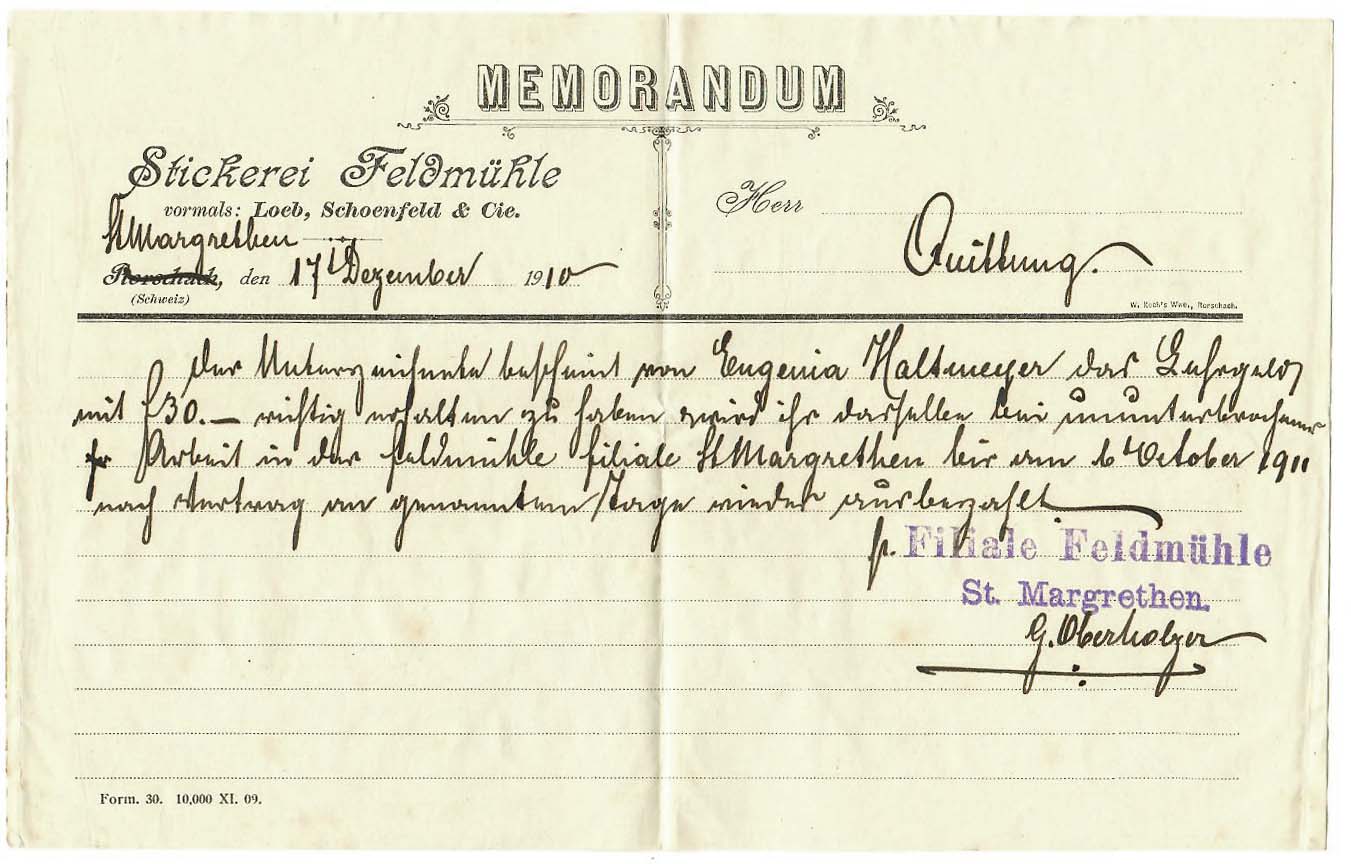 MEMORANDUM
Stickerei Feldmühle
vormals: Loeb, Schoenfeld & Cie.
St Margrethen
Rorschach, den 17t Dezember 1910
(Schweiz)
Herr
Quittung.
W. Koch's Wwe., Rorschach.
Der Unterzeichnete bescheint von Eugenia Haltmeyer das Lehrgeld
mit f 30.— richtig erhalten zu haben & wird ihr dasselbe bei ununterbrochener
Arbeit in der Feldmühle Filiale St Margrethen bis am 6 October 1911
nach Vertrag an genanntem Tage wieder ausbezahlt
p. Filiale Feldmühle
St. Margrethen.
G. Oberholzer
Form. 30. 10,000 XI. 09.